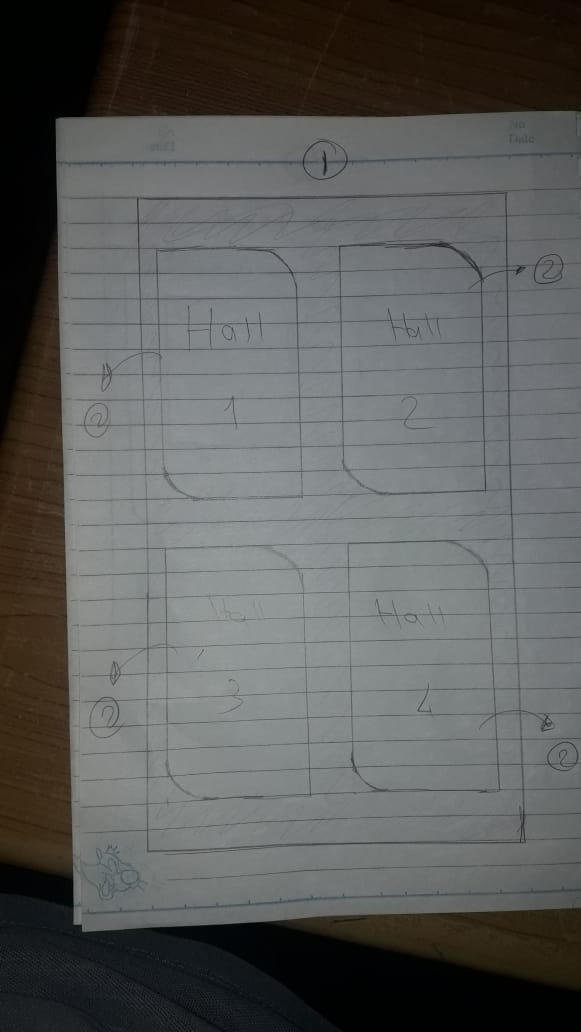 No
Date
1
Hall
1
Hall
2
2
2
Hall
3
Hall
4
2
2